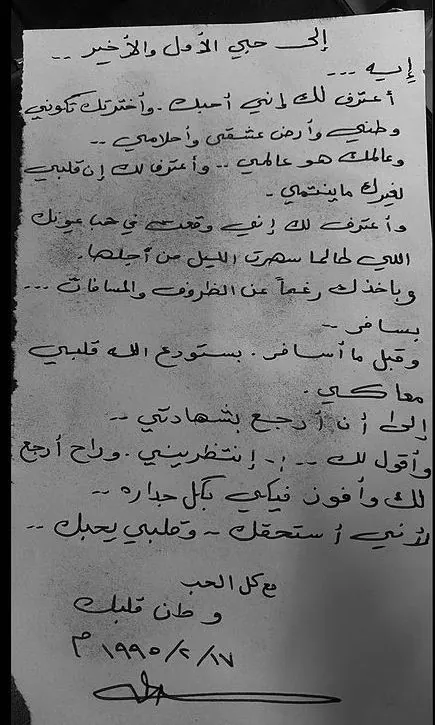 إلى حبي الأول والأخير ..
إيه ...
أعترف لك إني أحبك . وأخترتك تكوني
وطني وأرض عشقي وأحلامي ..
وعالمك هو عالمي .. وأعترف لك إن قلبي
لغيرك ماينتمي .
وأعترف لك إني وقعت في حب عيونك
اللي لطالما سهرت الليل من أجلها .
وباخذك رغماً عن الظروف والمسافات ...
بسافر ..
وقبل ما أسافر . بستودع الله قلبي
معاكي .
إلى أن أرجع بشهادتي ..
وأقول لك .. إنتظريني . وراح أرجع
لك وأفوز فيكي بكل جداره ..
لأني أستحقك .. وقلبي يحبك ..
مع كل الحب
وطن قلبك
١٧/٢/١٩٩٥ م